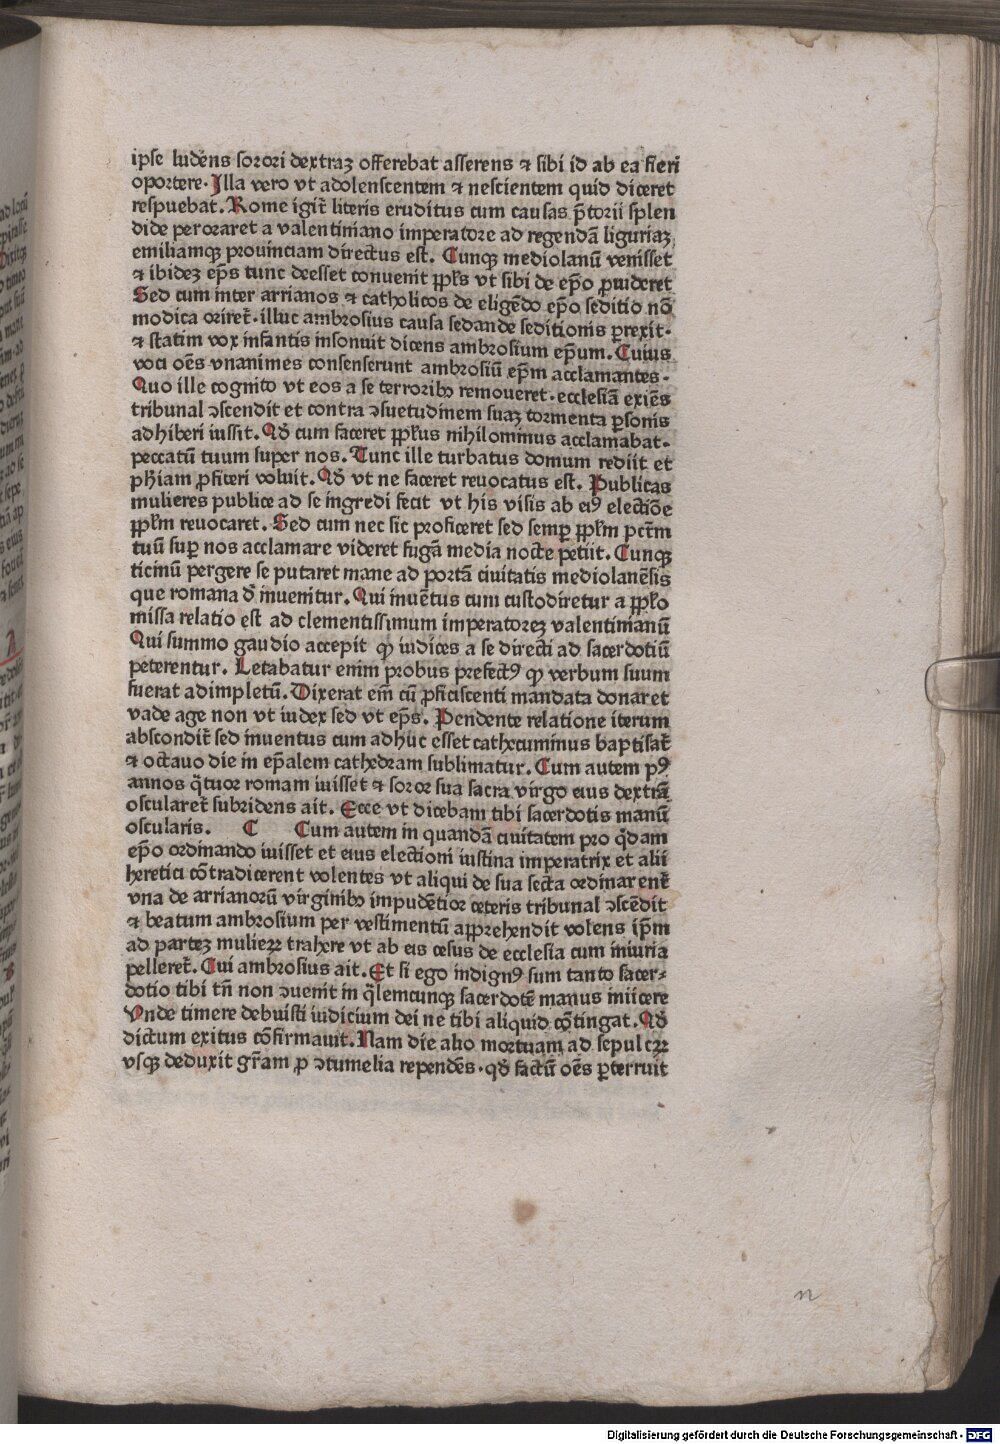 ipse ludēns sorori dextraꝫ offerebat asserens ⁊ sibi id ab ea fieri
oportere. Illa vero vt adolenscentem ⁊ nescientem quid diceret
respuebat. Rome igit᷑ literis eruditus cum causas p̄torii splen
dide peroraret a valentiniano imperatore ad regendā liguriaꝫ
emiliamqꝫ prouinciam directus est. Cunqꝫ mediolanū venisset
⁊ ibidez ep̄s tunc deesset conuenit ppl̄s vt sibi de ep̄o ꝓuideret
Sed cum inter arrianos ⁊ catholicos de eligēdo ep̄o seditio nō
modica oriret᷑. illuc ambrosius causa sedande seditionis ꝑrexit.
⁊ statim vox infantis insonuit dicens ambrosium ep̄um. Cuius
voci oēs vnanimes consenserunt ambrosiū ep̄m acclamantes.
Quo ille cognito vt eos a se terroribꝰ remoueret. ecclesiā exiēs
tribunal ꝯscendit et contra ꝯsuetudinem suaꝫ tormenta ꝑsonis
adhiberi iussit. Qd̄ cum faceret ppl̄us nihilominus acclamabat.
peccatū tuum super nos. Tunc ille turbatus domum rediit et
ph̄iam ꝓfiteri voluit. Qd̄ vt ne faceret reuocatus est. Publicas
mulieres publice ad se ingredi fecit vt his visis ab eiꝰ electiōe
ppl̄m reuocaret. Sed cum nec sic proficeret sed semꝑ ppl̄m pct̄m
tuū suꝑ nos acclamare videret fugā media nocte petiit. Cunqꝫ
ticinū pergere se putaret mane ad portā ciuitatis mediolanēsis
que romana d̄ inuenitur. Qui inuētus cum custodiretur a ppl̄o
missa relatio est ad clementissimum imperatoreꝫ valentinianū
Qui summo gaudio accepit ꝙ iudices a se directi ad sacerdotiū
peterentur. Letabatur enim probus prefectꝰ ꝙ verbum suum
fuerat adimpletū. Dixerat em̄ cū ꝓficiscenti mandata donaret
vade age non vt iudex sed vt ep̄s. Pendente relatione iterum
abscondit᷑ sed inuentus cum adhuc esset cathecuminus baptisat᷑
⁊ octauo die in ep̄alem cathedram sublimatur. Cum autem pꝰ
annos q̄tuor romam iuisset ⁊ soror sua sacra virgo eius dextrā
oscularet᷑ subridens ait. Ecce vt dicebam tibi sacerdotis manū
oscularis. C Cum autem in quandā ciuitatem pro q̄dam
ep̄o ordinando iuisset et eius electioni iustina imperatrix et alii
heretici cōtradicerent volentes vt aliqui de sua secta ordinarent᷑
vna de arrianorū virginibꝰ impudētior ceteris tribunal ꝯscēdit
⁊ beatum ambrosium per vestimentū apprehendit volens ip̄m
ad parteꝫ mulieꝝ trahere vt ab eis cesus de ecclesia cum iniuria
pelleret᷑. Cui ambrosius ait. Et si ego indignꝰ sum tanto sacer-
dotio tibi tn̄ non ꝯuenit in q̄lemcunqꝫ sacerdotē manus iniicere
Vnde timere debuisti iudicium dei ne tibi aliquid cōtingat. Qd̄
dictum exitus cōfirmauit. Nam die alio mortuam ad sepulcꝝ
vsqꝫ deduxit gr̄am ꝓ ꝯtumelia rependēs. qd̄ factū oēs ꝑterruit
n
Digitalisierung gefördert durch die Deutsche Forschungsgemeinschaft - DFG